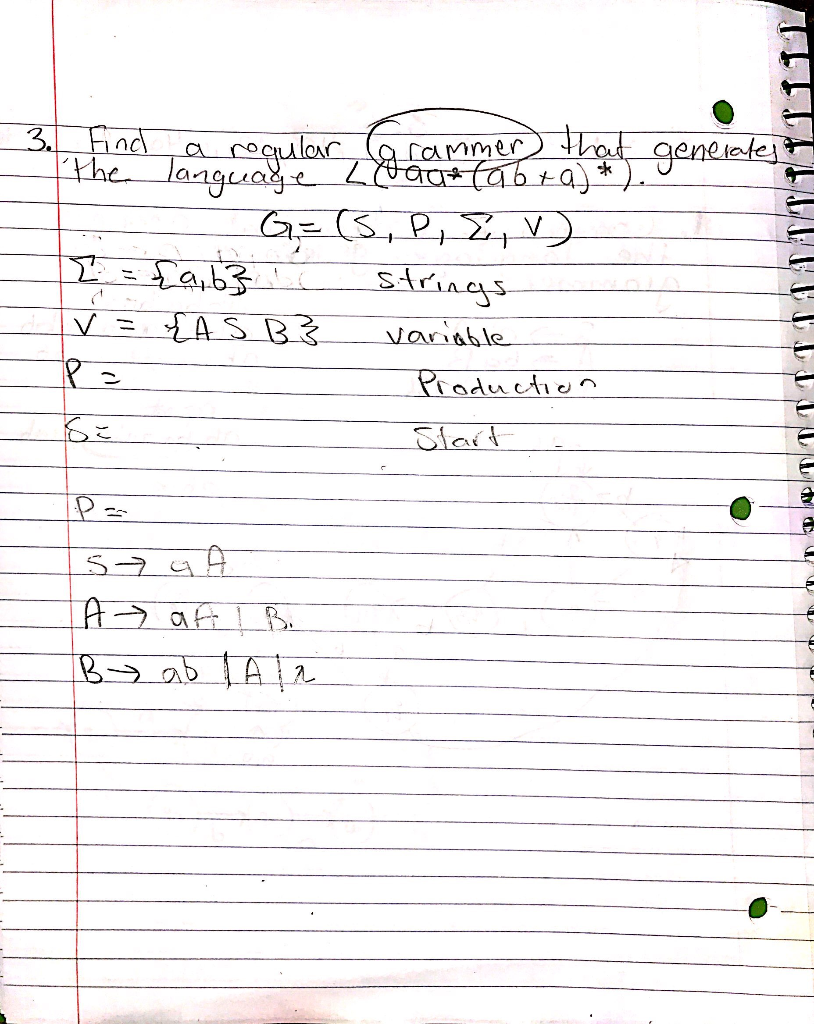 3. Find a rogular grammer that generates
the language L(aa*(ab+a)*).
G = (S, P, Σ, V)
Σ = {a,b} strings
V = {A S B} variable
P = Production
S = Start
P =
S → aA
A → aA | B.
B → ab | A | λ